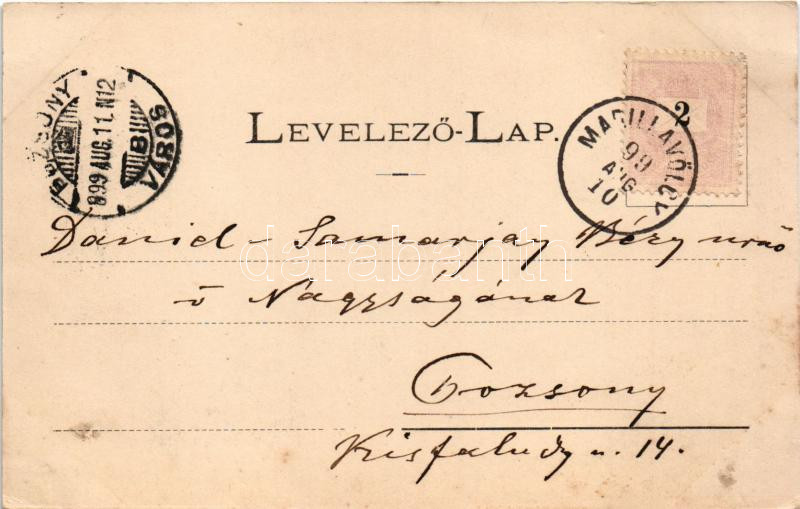 LEVELEZŐ-LAP.
2
POZSONY VÁROS
899 AUG. 11. N12
B
MARILLAVÖLGY
99
AUG
10
Daniel-Szmarjay úrnő
ő Nagyságának
Pozsony
Kisfaludy u. 14.
darabanth